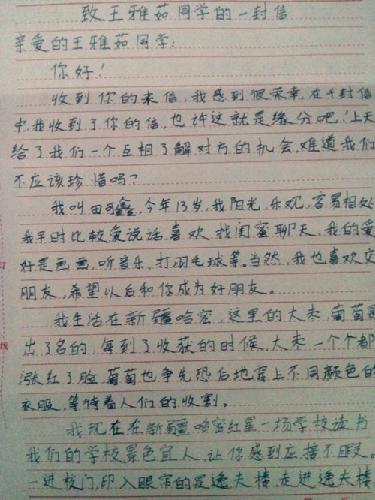 致王雅茹同学的一封信
亲爱的王雅茹同学:
你好!
收到你的来信,我感到很荣幸,在千封信
中,我收到了你的信,也许这就是缘分吧!上天
给了我们一个互相了解对方的机会,难道我们
不应该珍惜吗?
我叫田 鑫,今年13岁,我阳光,乐观,容易相处
我平时比较爱说话,喜欢找闺蜜聊天,我的爱
好是画画,听音乐,打羽毛球等。当然,我也喜欢交
朋友,希望以后和你成为好朋友。
我生活在新疆哈密,这里的大枣,葡萄
出了名的,每到了收获的时候,大枣一个个都
涨红了脸,葡萄也争先恐后地穿上不同颜色的
衣服,等待着人们的收割。
我现在在新疆哈密红星一场学校读书
我们的学校景色宜人,让你感到应接不暇。
一进校门,印入眼帘的是逸夫楼,走进逸夫楼